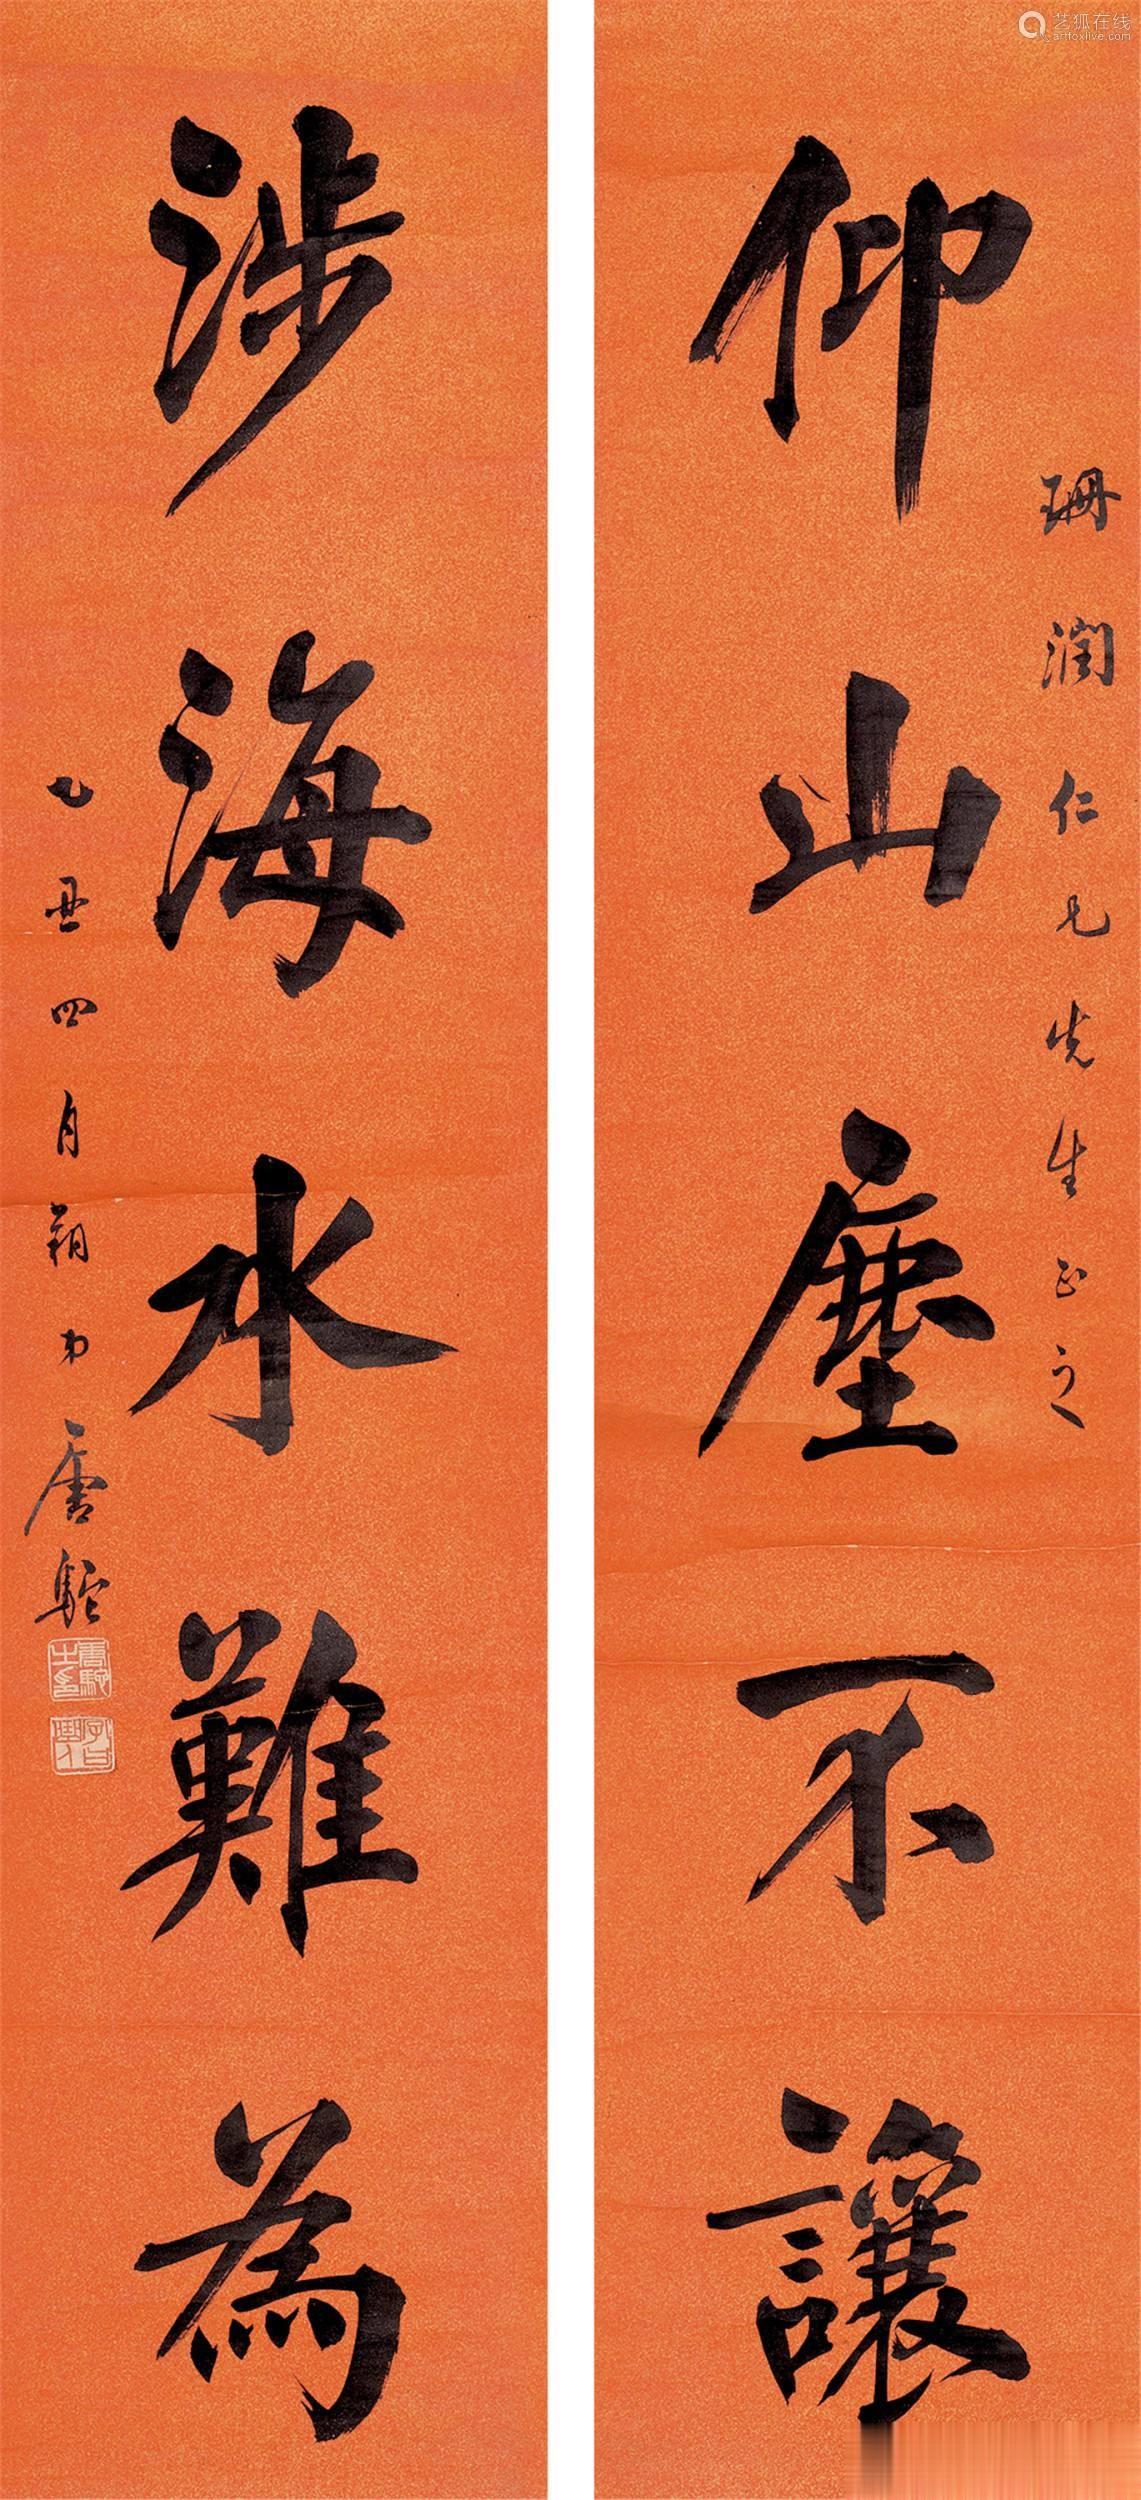 仰山塵不讓
珊潤仁兄先生正之
涉海水難為
乙丑四月朔弟唐駝
唐駝之印
艺狐在线
artfoxlive.com